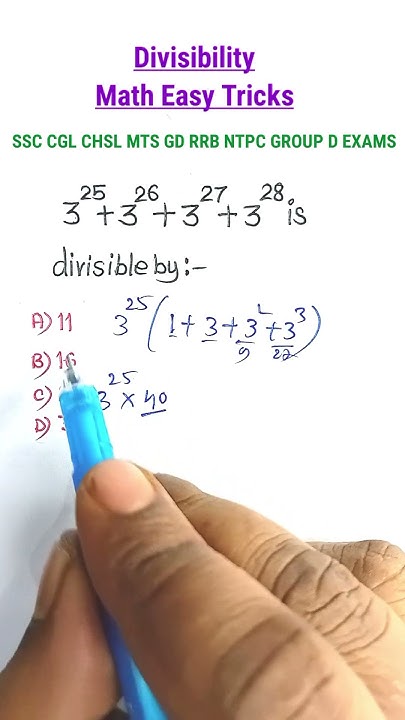 Divisibility
Math Easy Tricks
SSC CGL CHSL MTS GD RRB NTPC GROUP D EXAMS
3²⁵+3²⁶+3²⁷+3²⁸ is
divisible by:-
A) 11
3²⁵(1+3+3²+3³)
9 27
B) 16
C)
3²⁵×40
D)